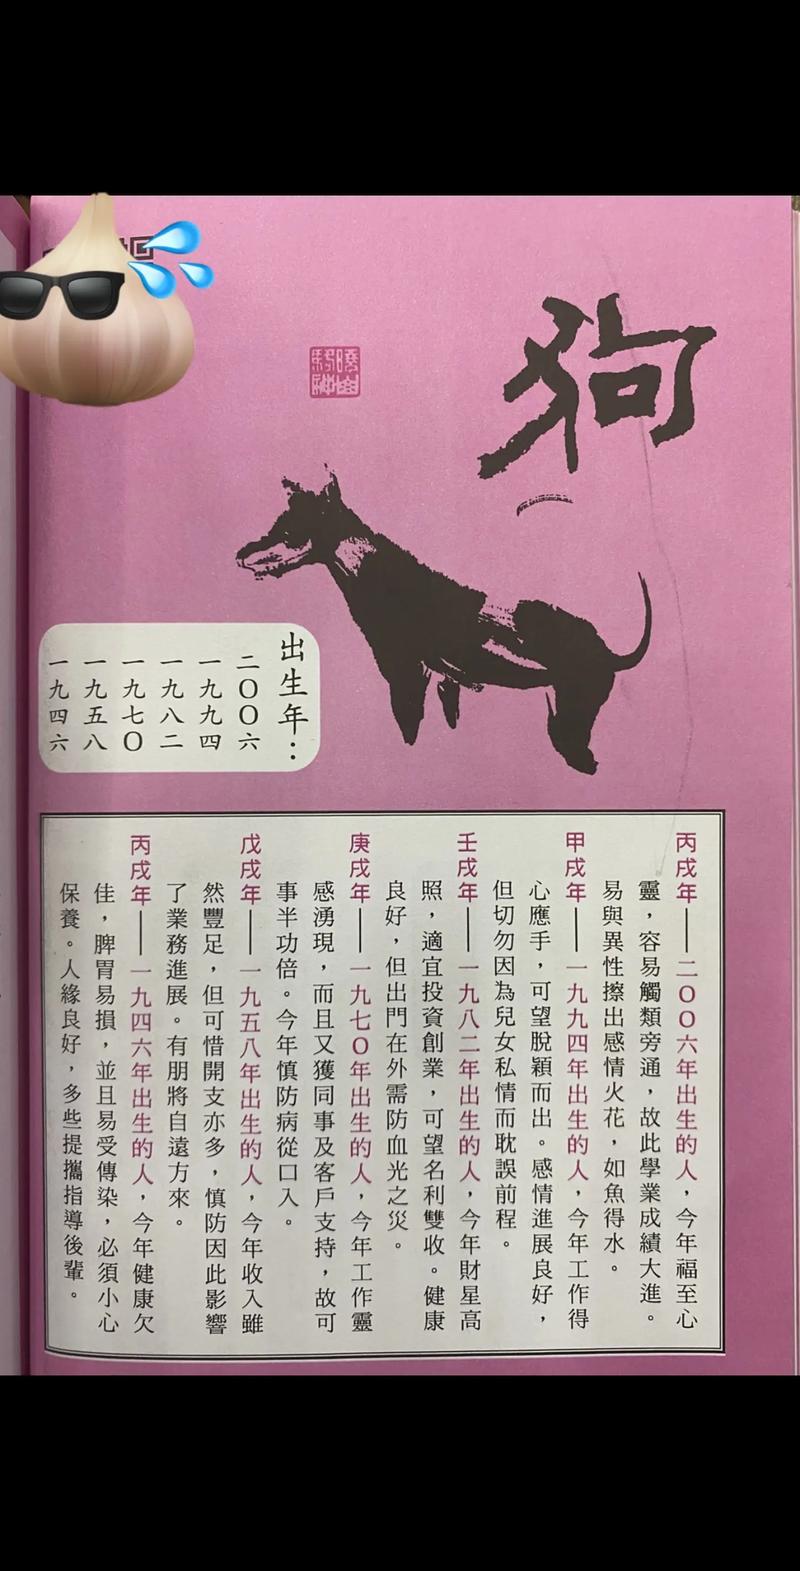 狗
出生年：
二〇〇六
一九九四
一九八二
一九七〇
一九五八
一九四六
丙戌年——二〇〇六年出生的人，今年福至心
靈，容易觸類旁通，故此學業成績大進。
易與異性擦出感情火花，如魚得水。
甲戌年——一九九四年出生的人，今年工作得
心應手，可望脫穎而出。感情進展良好，
但切勿因為兒女私情而耽誤前程。
壬戌年——一九八二年出生的人，今年財星高
照，適宜投資創業，可望名利雙收。健康
良好，但出門在外需防血光之災。
庚戌年——一九七〇年出生的人，今年工作靈
感湧現，而且又獲同事及客戶支持，故可
事半功倍。今年慎防病從口入。
戊戌年——一九五八年出生的人，今年收入雖
然豐足，但可惜開支亦多，慎防因此影響
了業務進展。有朋將自遠方來。
丙戌年——一九四六年出生的人，今年健康欠
佳，脾胃易損，並且易受傳染，必須小心
保養。人緣良好，多些提攜指導後輩。